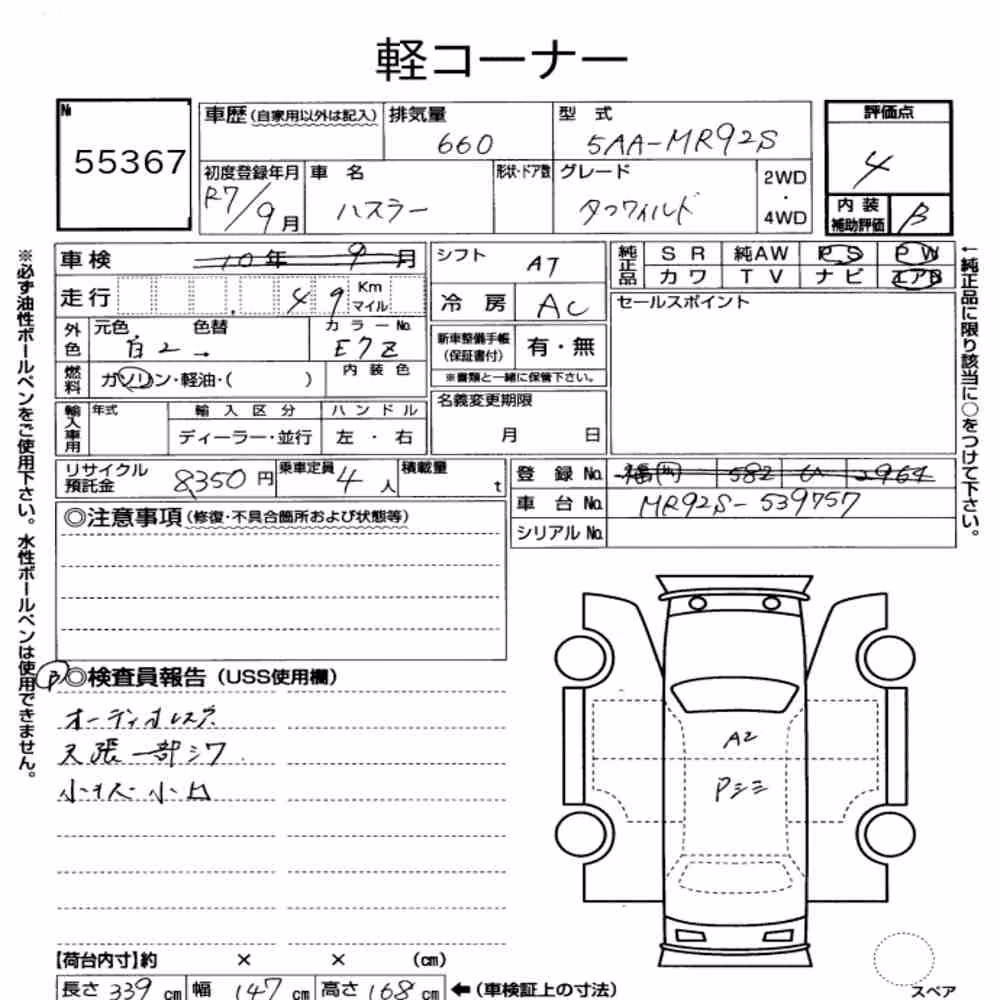 軽コーナー
№ 55367
車歴(自家用以外は記入) 排気量 660 型 式 5AA-MR92S 評価点 4
初度登録年月 R7/9月 車 名 ハスラー 形状・ドア数 グレード タフワイルド 2WD・4WD
内装補助評価 B
車検 10年 9月 シフト AT 純正品 SR 純AW PS PW
カワ TV ナビ エアB
走行 49 Km マイル 冷 房 AC セールスポイント
外色 元色 白2 色替 → カラーNo. E7Z 新車整備手帳(保証書付) 有・無
※書類と一緒に保管下さい。
燃料 ガソリン・軽油・( ) 内装色 名義変更期限 月 日
輸入車用 年式 輸入区分 ハンドル
ディーラー・並行 左・右
リサイクル預託金 8350円 乗車定員 4人 積載量 t 登録No. 福岡 582 い 2964
車台No. MR92S-539757
シリアルNo.
◎注意事項(修復・不具合箇所および状態等)
B ◎検査員報告(USS使用欄)
オーディオレス
天張一部シワ
小キズ小凹
A2
Pシミ
【荷台内寸】約 × × (cm)
長さ 339 cm 幅 147 cm 高さ 168 cm ←(車検証上の寸法)
スペア
※必ず油性ボールペンをご使用下さい。水性ボールペンは使用できません。
←純正品に限り該当に○をつけて下さい。